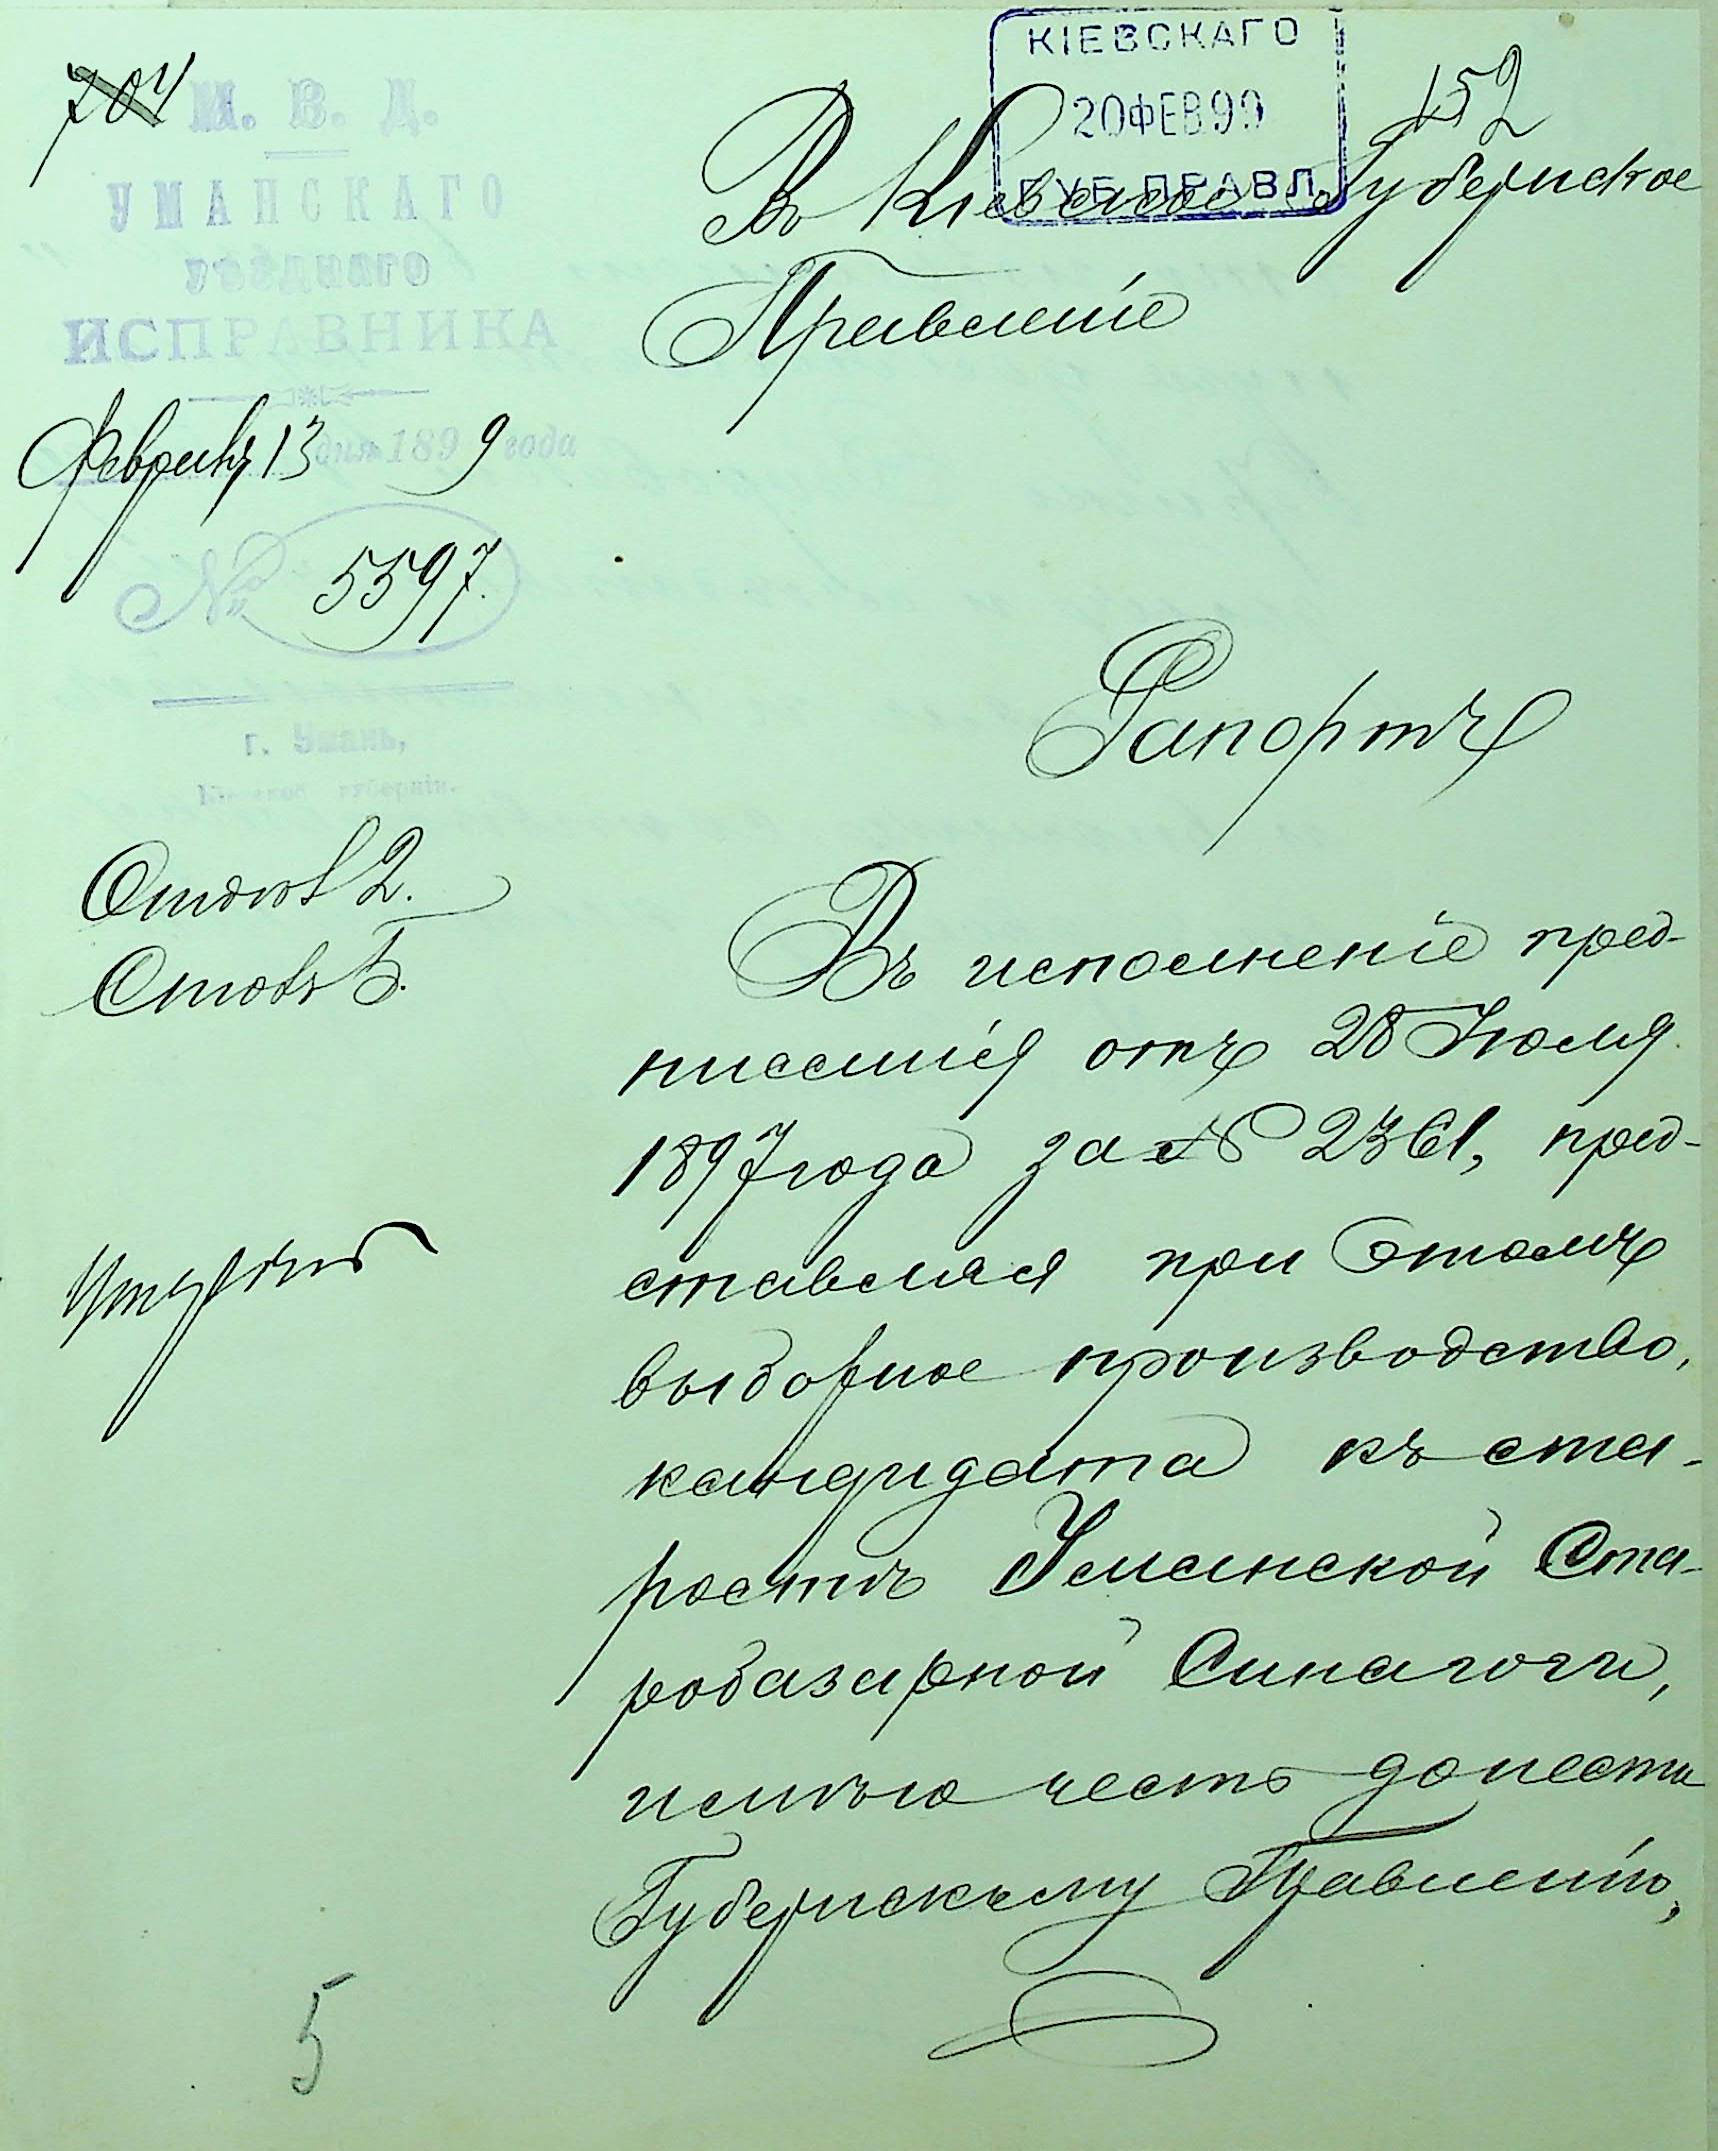 КІЕВСКАГО
20 ФЕВ 99
ГУБ. ПРАВЛ.
704
152
М. В. Д.
УМАНСКАГО
УѢЗДНАГО
ИСПРАВНИКА
Февраля 13 дня 1899 года
№ 5597.
г. Умань,
Кіевской губерніи.
Въ Кіевское Губернское
Правленіе
Рапортъ
Въ исполненіе пред-
писанія отъ 28 Іюля
1897 года за № 2361, пред-
ставляя при этомъ
выборное производство,
кандидата къ ста-
ростѣ Уманской Ста-
робазарной Синагоги,
имѣю честь донести
Губернскому Правленію,
5